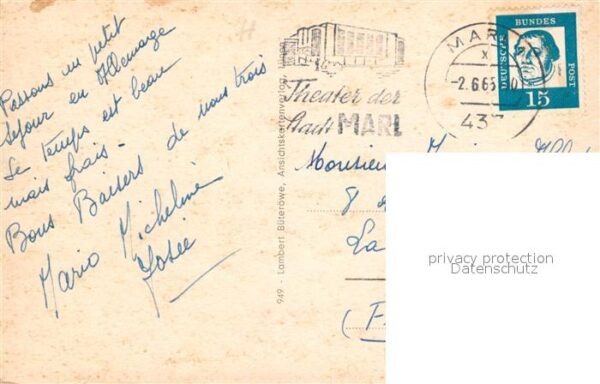 Passons un petit
séjour en Allemagne
Le temps est beau
mais frais.
Bons Baisers de nous trois
Mario Micheline
Josée
949 - Lambert Büteröwe, Ansichtskartenverlag,
Theater der
Stadt MARL
MARL
x
-2.6.65
437
DEUTSCHE BUNDESPOST
15
Monsieur
8
La
(F
privacy protection
Datenschutz